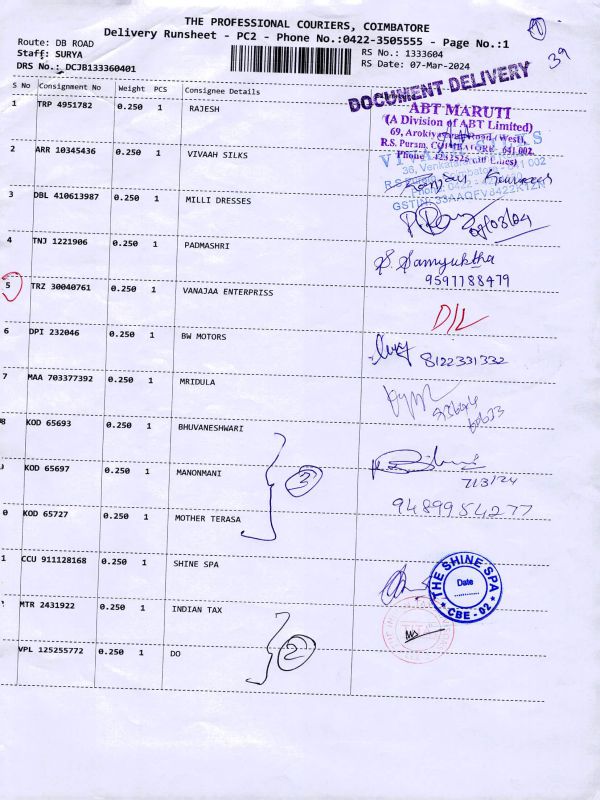 THE PROFESSIONAL COURIERS, COIMBATORE
Delivery Runsheet - PC2 - Phone No.:0422-3505555 - Page No.:1
Route: DB ROAD
Staff: SURYA
DRS No.: DCJB133360401
RS No.: 1333604
RS Date: 07-Mar-2024
39
DOCUMENT DELIVERY
S No Consignment No Weight PCS Consignee Details
1 TRP 4951782 0.250 1 RAJESH
ABT MARUTI
(A Division of ABT Limited)
R.S. Puram, COIMBATORE - 641 002
2 ARR 10345436 0.250 1 VIVAAH SILKS
3 DBL 410613987 0.250 1 MILLI DRESSES
4 TNJ 1221906 0.250 1 PADMASHRI
S Samyuktha
9597788479
5 TRZ 30040761 0.250 1 VANAJAA ENTERPRISS
D/L
6 DPI 232046 0.250 1 BW MOTORS
8122331332
7 MAA 703377392 0.250 1 MRIDULA
8 KOD 65693 0.250 1 BHUVANESHWARI
KOD 65697 0.250 1 MANONMANI
3
7/3/24
0 KOD 65727 0.250 1 MOTHER TERASA
9489954277
1 CCU 911128168 0.250 1 SHINE SPA
THE SHINE SPA
Date
CBE - 02
MTR 2431922 0.250 1 INDIAN TAX
VPL 125255772 0.250 1 DO
2